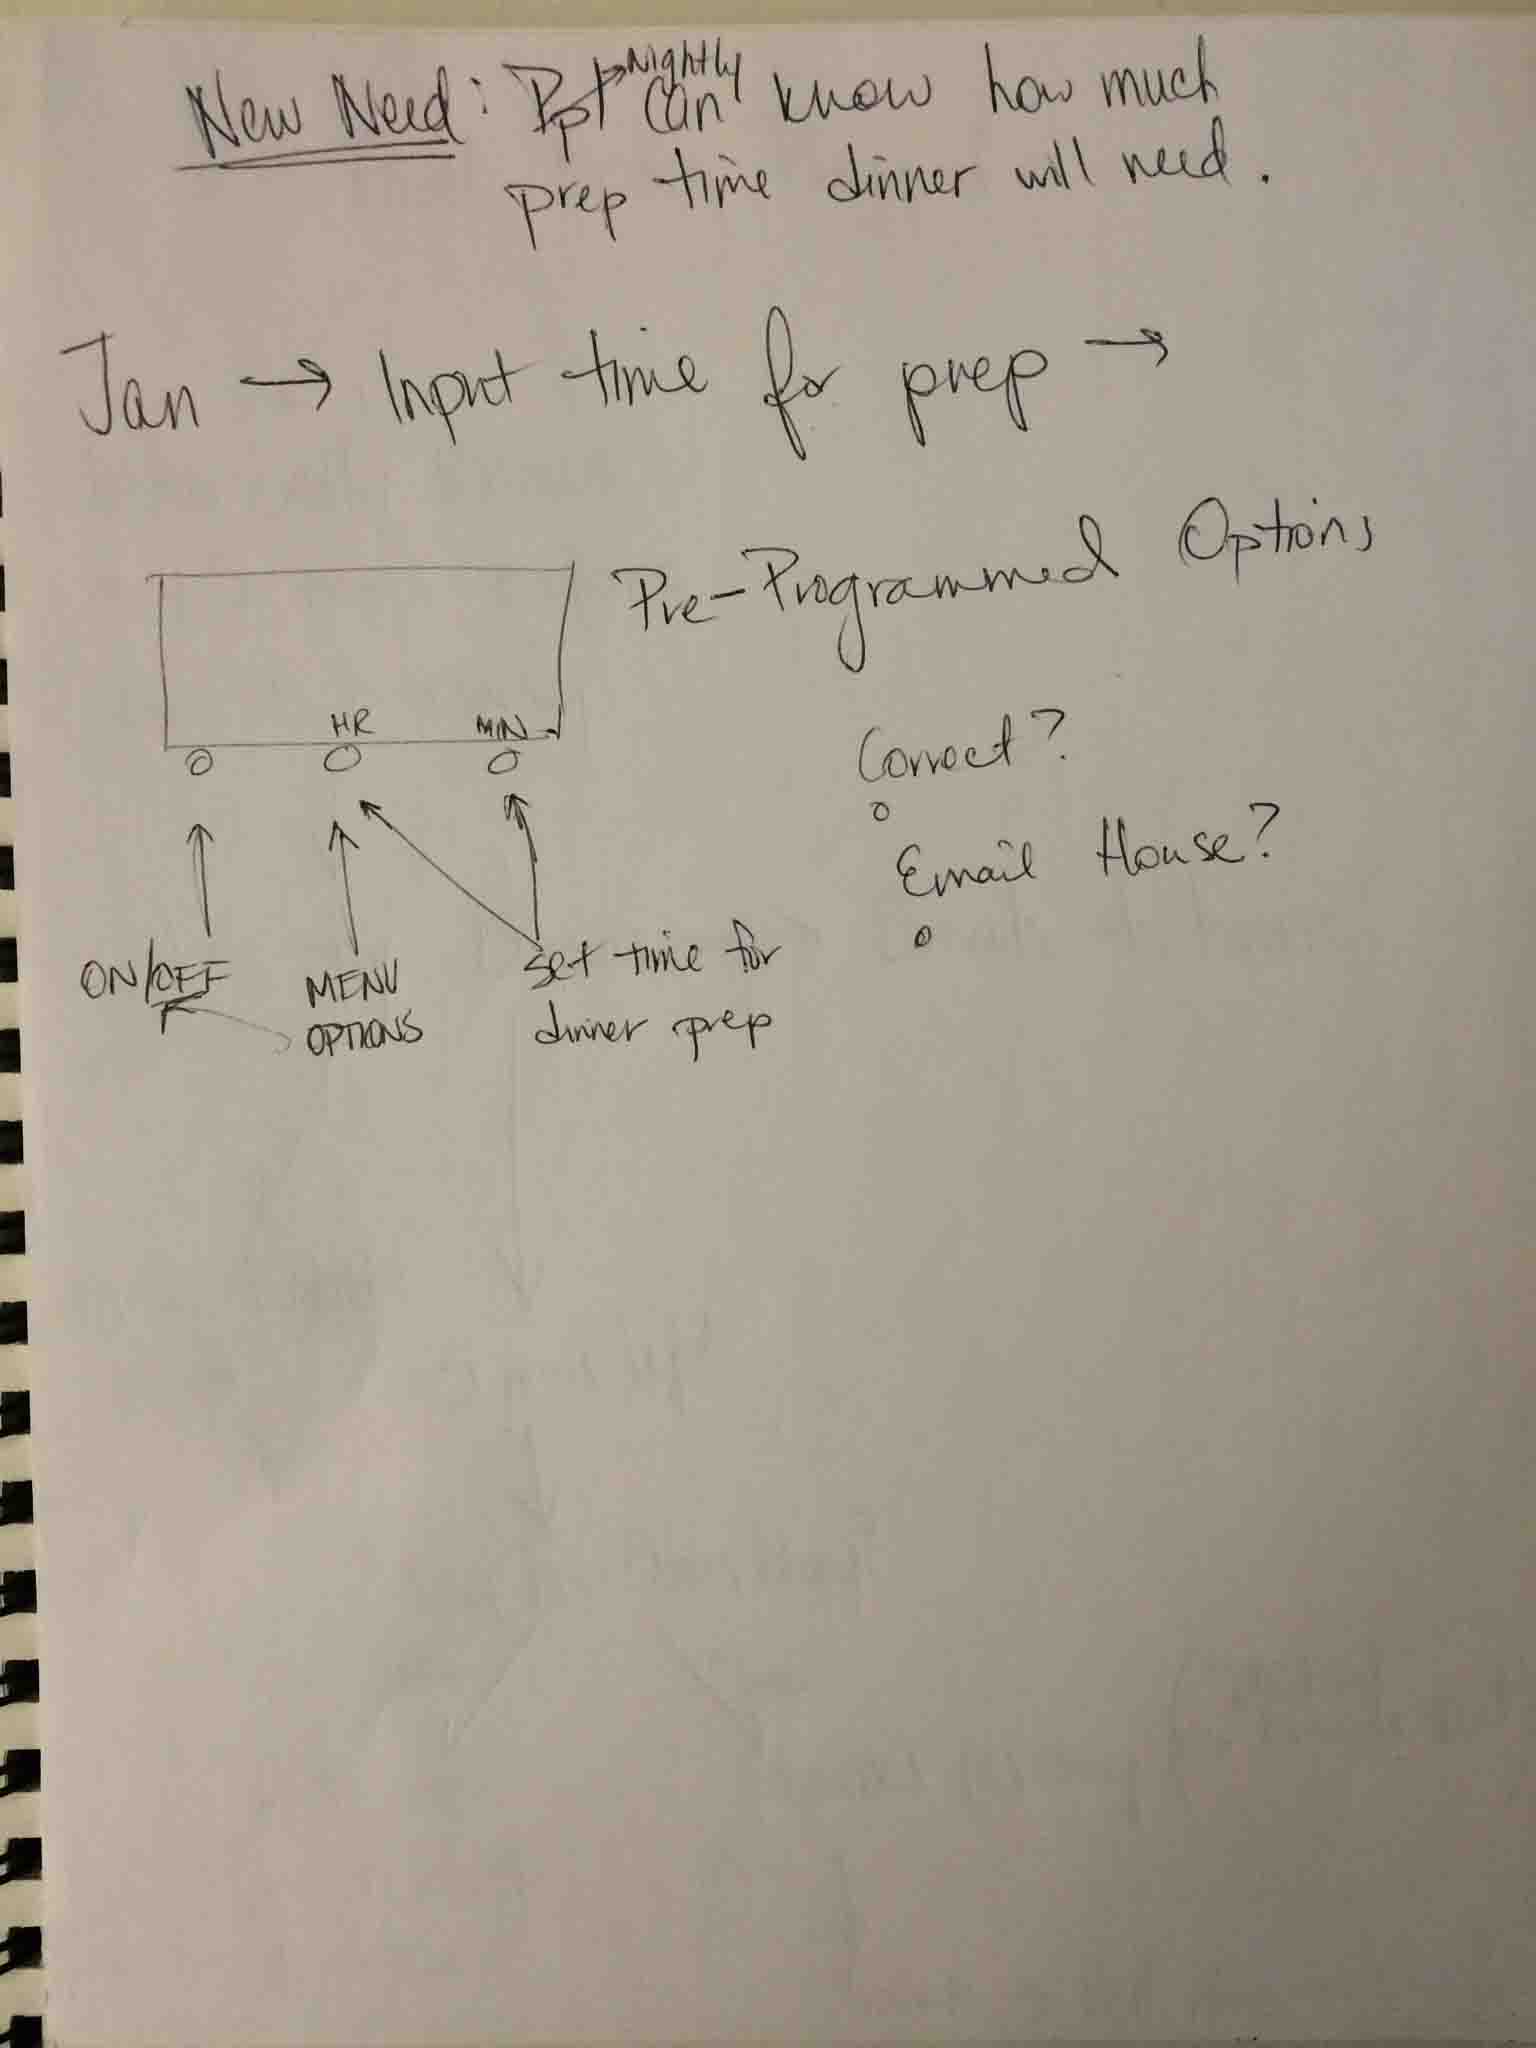 New Need: Ppl Nightly can know how much
prep time dinner will need.
Jan → Input time for prep →
Pre-Programmed Options
HR MIN
Correct?
Email House?
ON/OFF
MENU
OPTIONS
set time for
dinner prep